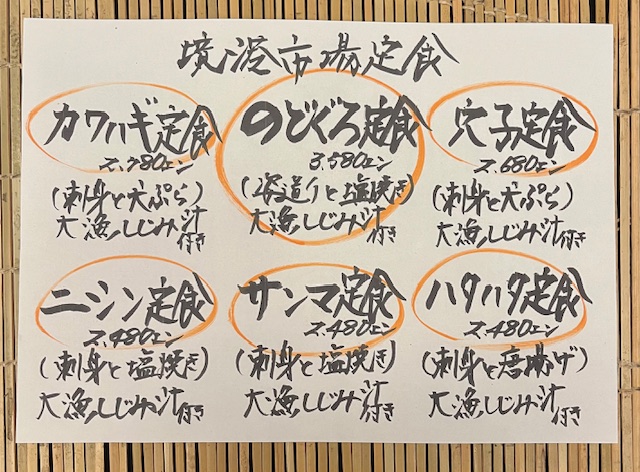 境港市場定食
カワハギ定食
2,780エン
(刺身と天ぷら)
大漁しじみ汁付き
のどぐろ定食
3,580エン
(姿造りと塩焼き)
大漁しじみ汁付き
穴子定食
2,680エン
(刺身と天ぷら)
大漁しじみ汁付き
ニシン定食
2,480エン
(刺身と塩焼き)
大漁しじみ汁付き
サンマ定食
2,480エン
(刺身と塩焼き)
大漁しじみ汁付き
ハタハタ定食
2,480エン
(刺身と唐揚げ)
大漁しじみ汁付き